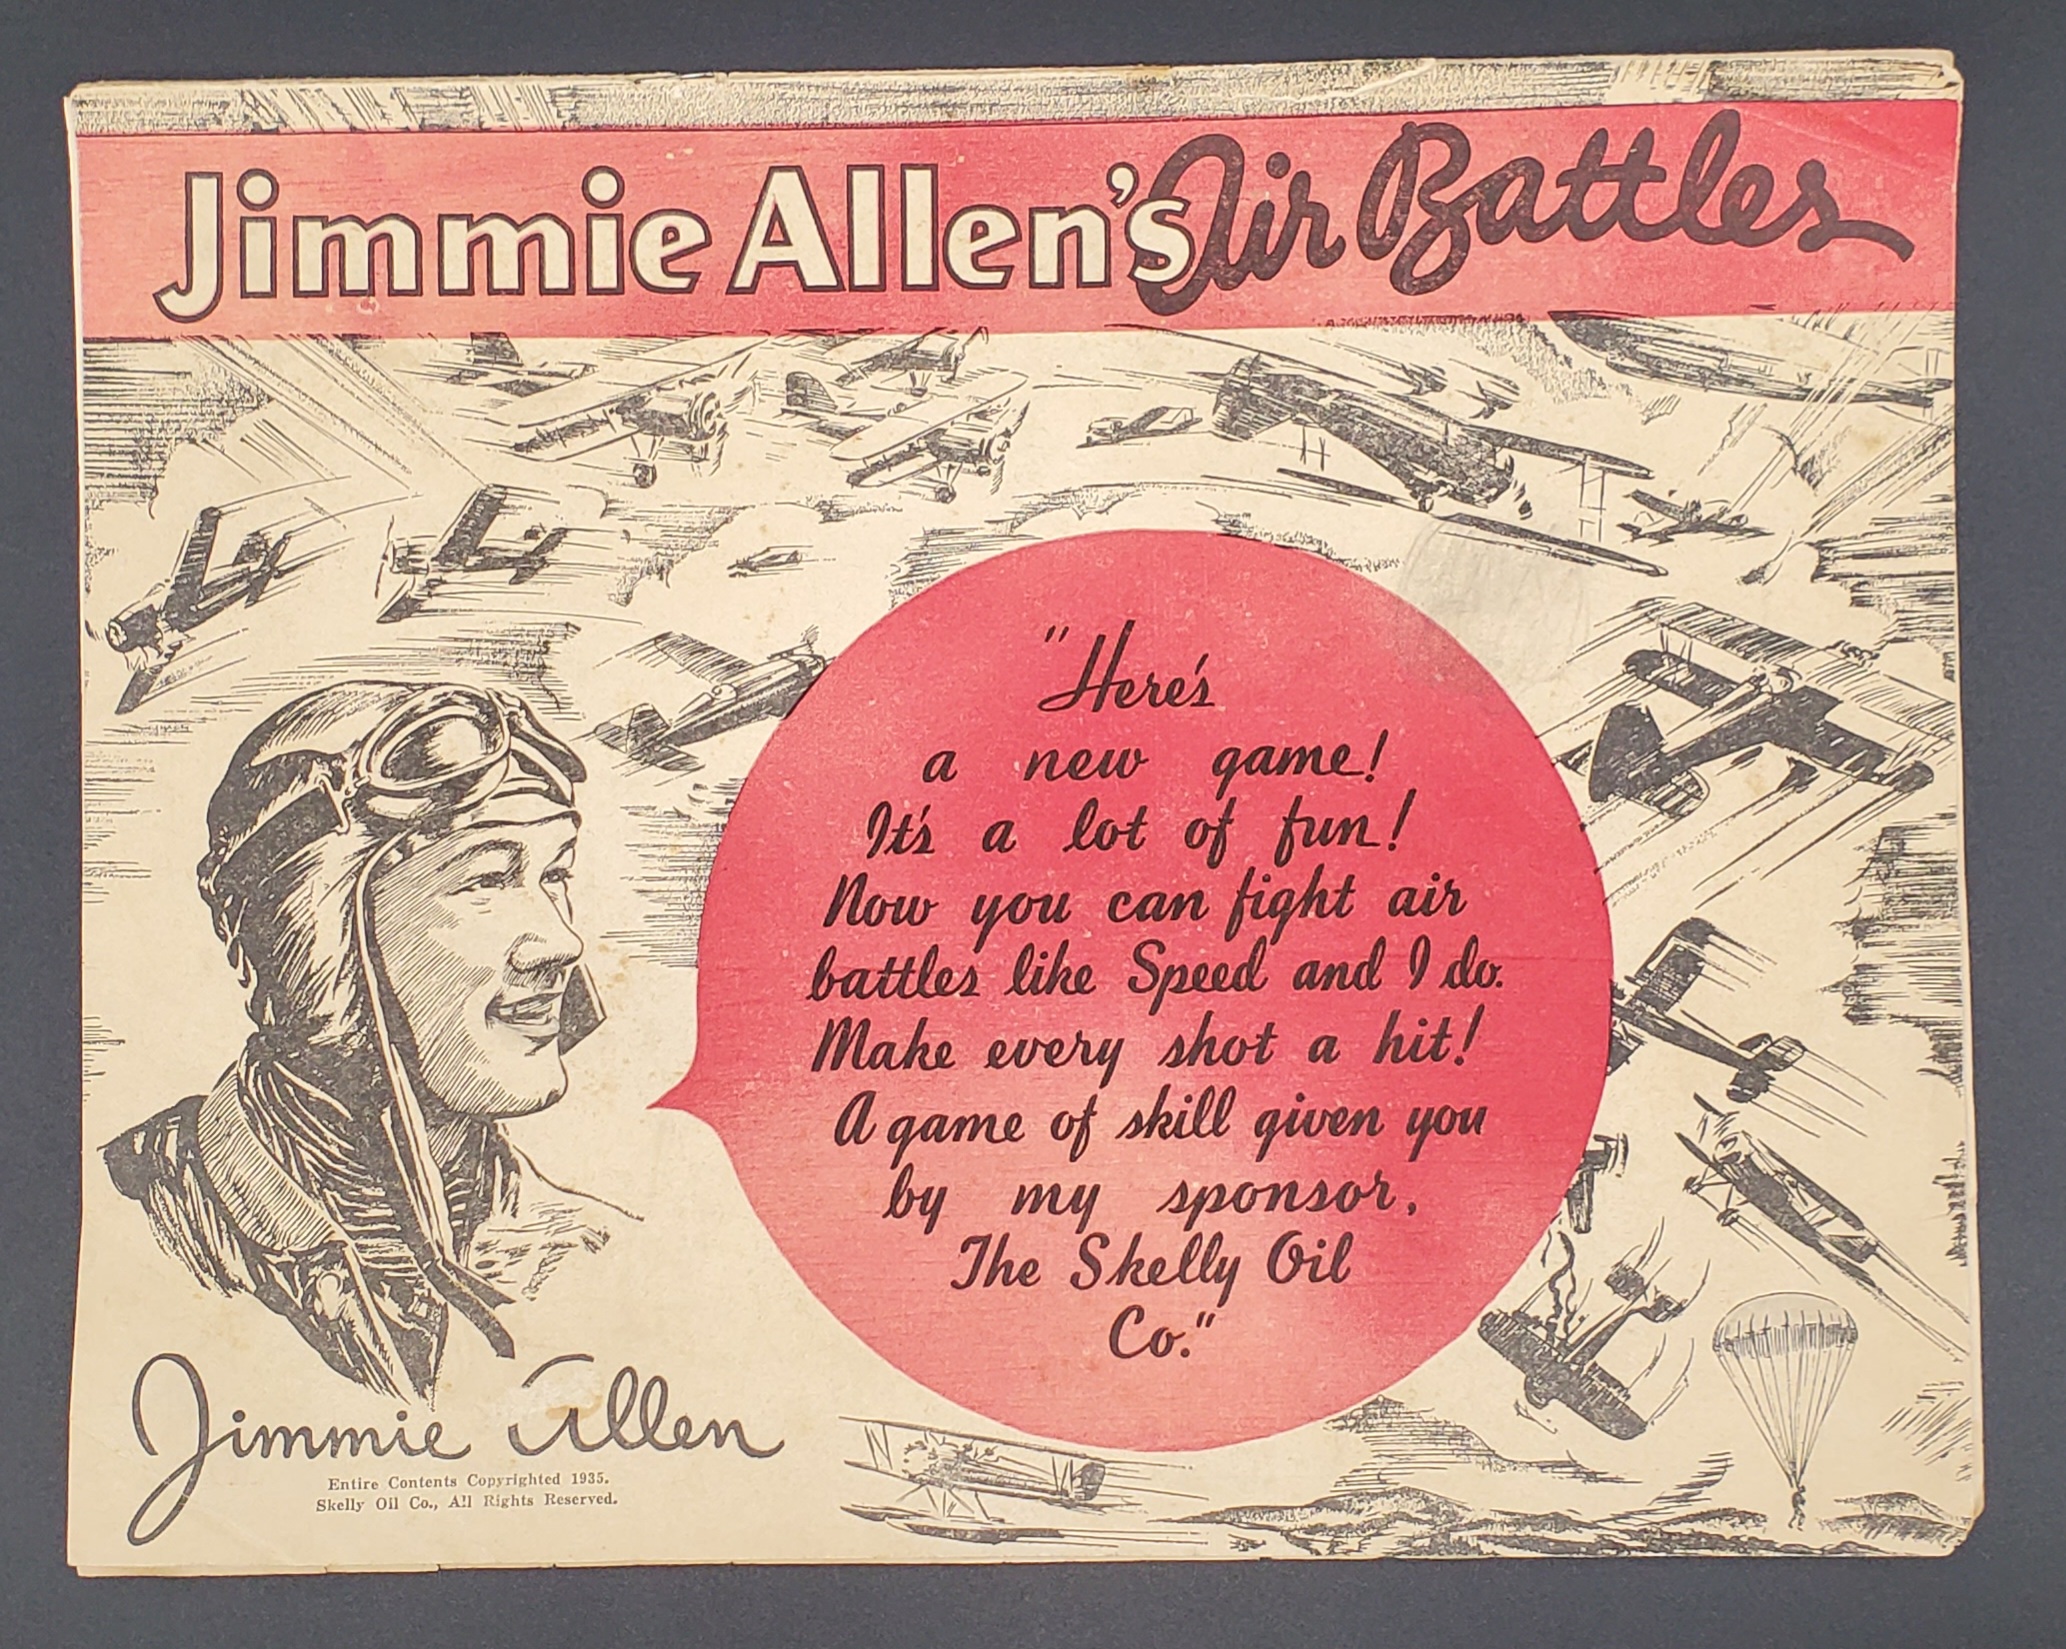 Jimmie Allen's Air Battles
"Here's
a new game!
It's a lot of fun!
Now you can fight air
battles like Speed and I do.
Make every shot a hit!
A game of skill given you
by my sponsor,
The Skelly Oil
Co."
Jimmie Allen
Entire Contents Copyrighted 1935.
Skelly Oil Co., All Rights Reserved.